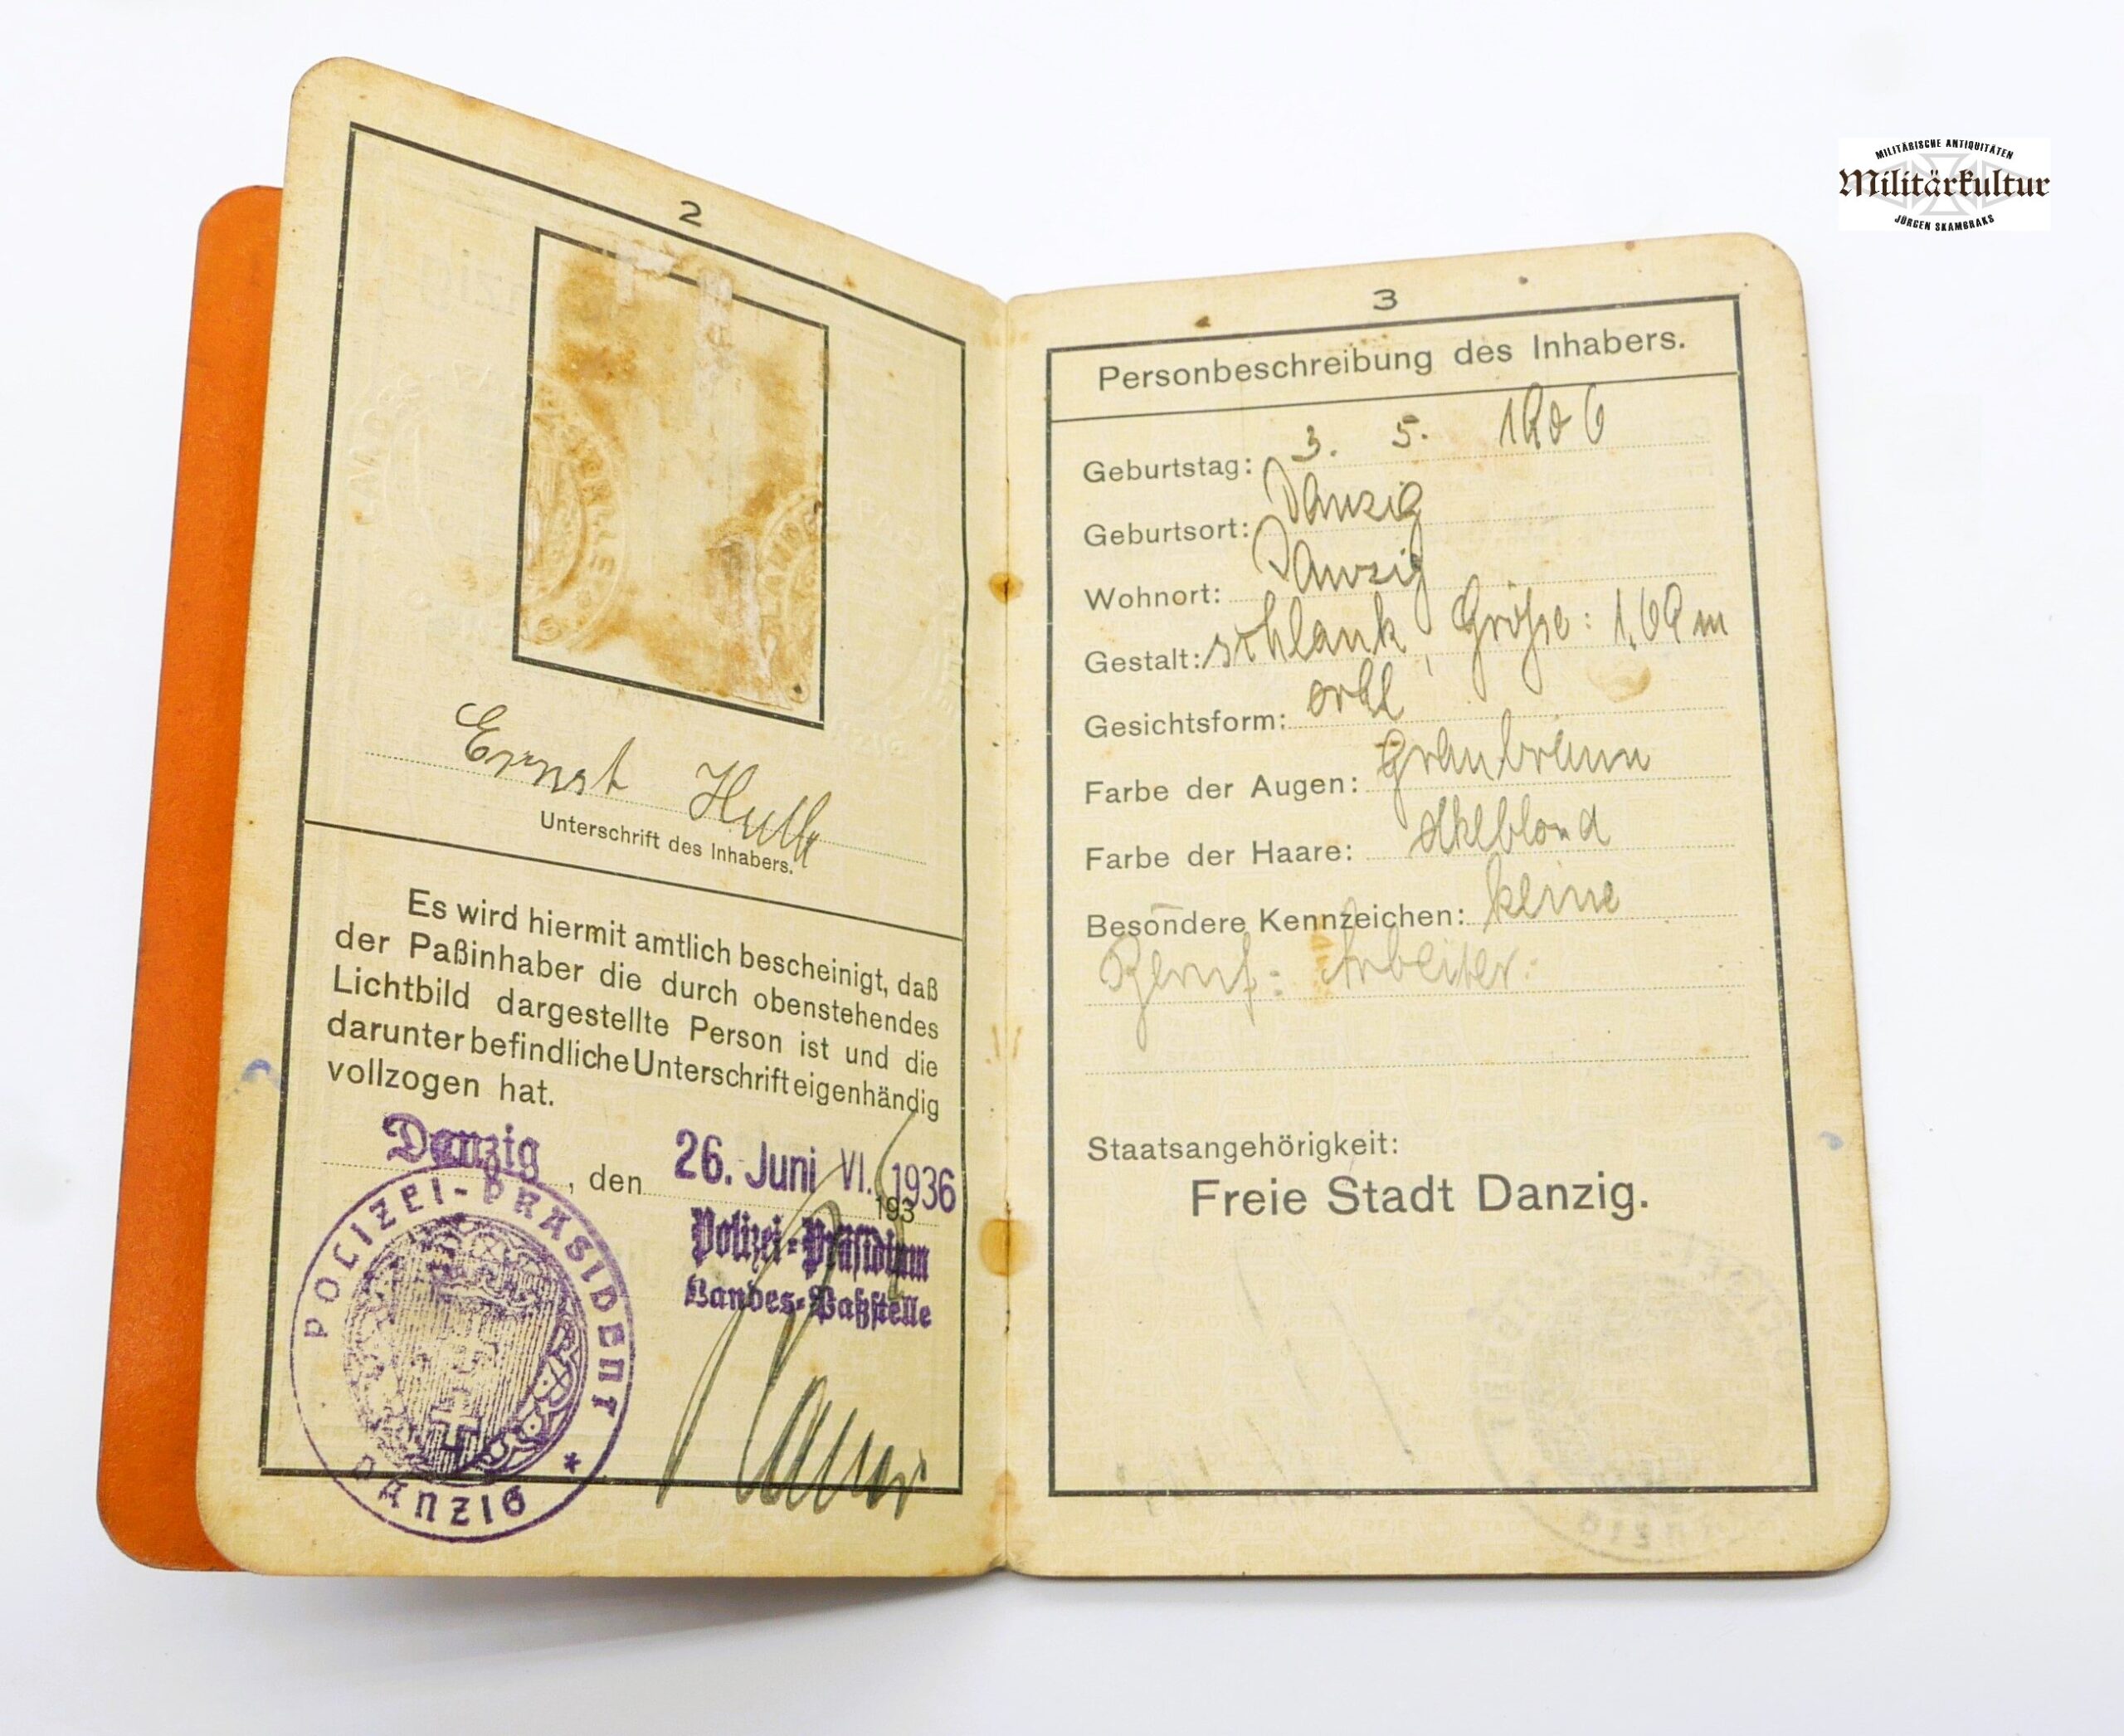 MILITÄRISCHE ANTIQUITÄTEN
Militärkultur
JÜRGEN SKAMBRAKS
2
Ernst
Unterschrift des Inhabers.
Es wird hiermit amtlich bescheinigt, daß
der Paßinhaber die durch obenstehendes
Lichtbild dargestellte Person ist und die
darunter befindliche Unterschrift eigenhändig
vollzogen hat.
Danzig, den 26. Juni VI. 1936
193
Polizei-Präsidium
Landes-Paßstelle
POLIZEI-PRÄSIDENT
DANZIG *
3
Personbeschreibung des Inhabers.
Geburtstag: 3. 5.
Geburtsort: Danzig
Wohnort: Danzig
Gestalt: schlank, Größe: 1,69 m
Gesichtsform: oval
Farbe der Augen: graubraun
Farbe der Haare: dklblond
Besondere Kennzeichen: keine
Beruf: Arbeiter.
Staatsangehörigkeit:
Freie Stadt Danzig.